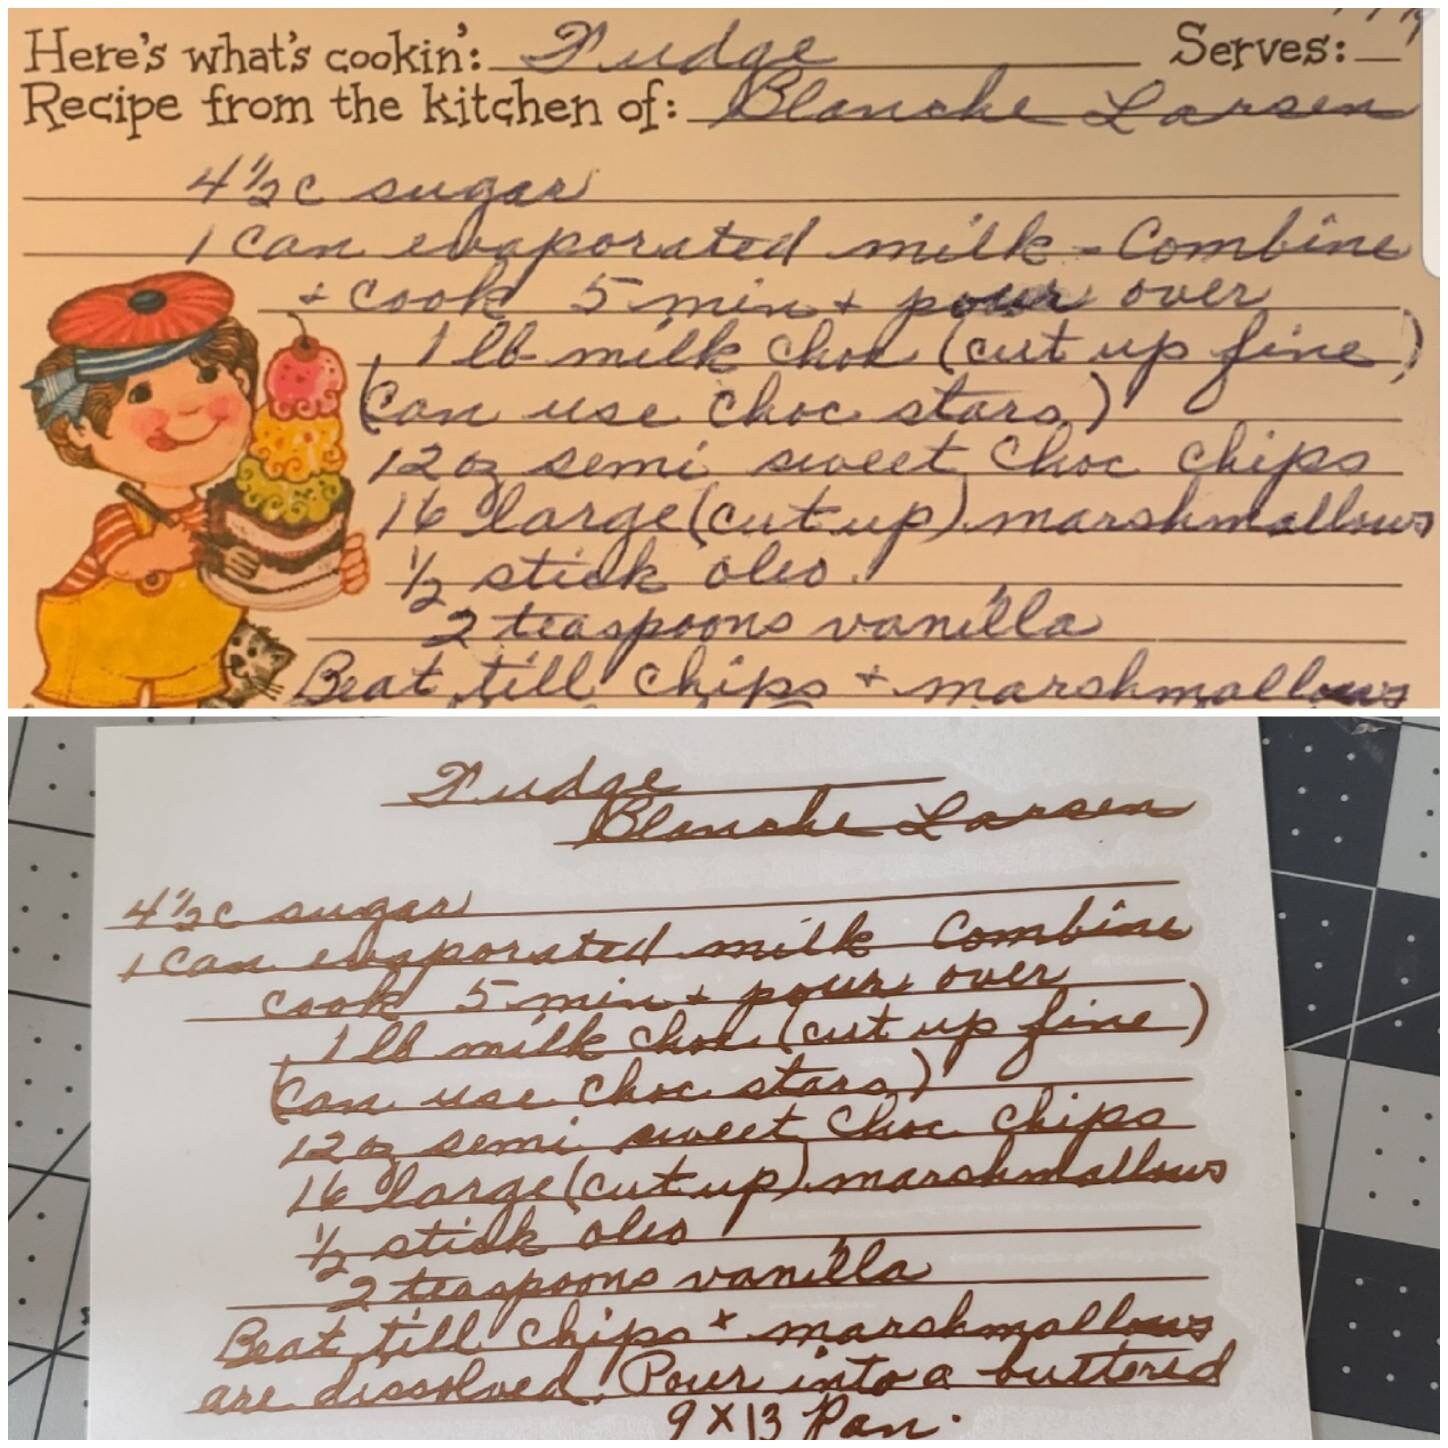 Here's what's cookin': Fudge Serves:
Recipe from the kitchen of: Blanche Larsen
4 1/2 c sugar
1 Can evaporated milk - Combine
+ Cook 5 min + pour over
1 lb milk choc (cut up fine)
(Can use choc stars)
12 oz semi sweet choc chips
16 large (cut up) marshmallows
1/2 stick oleo.
2 teaspoons vanilla
Beat till chips + marshmallows
Fudge
Blanche Larsen
4 1/2 c sugar
1 Can evaporated milk Combine
cook 5 min + pour over
1 lb milk choc (cut up fine)
(Can use choc stars)
12 oz semi sweet choc chips
16 large (cut up) marshmallows
1/2 stick oleo
2 teaspoons vanilla
Beat till chips + marshmallows
are dissolved. Pour into a buttered
9 X 13 Pan.